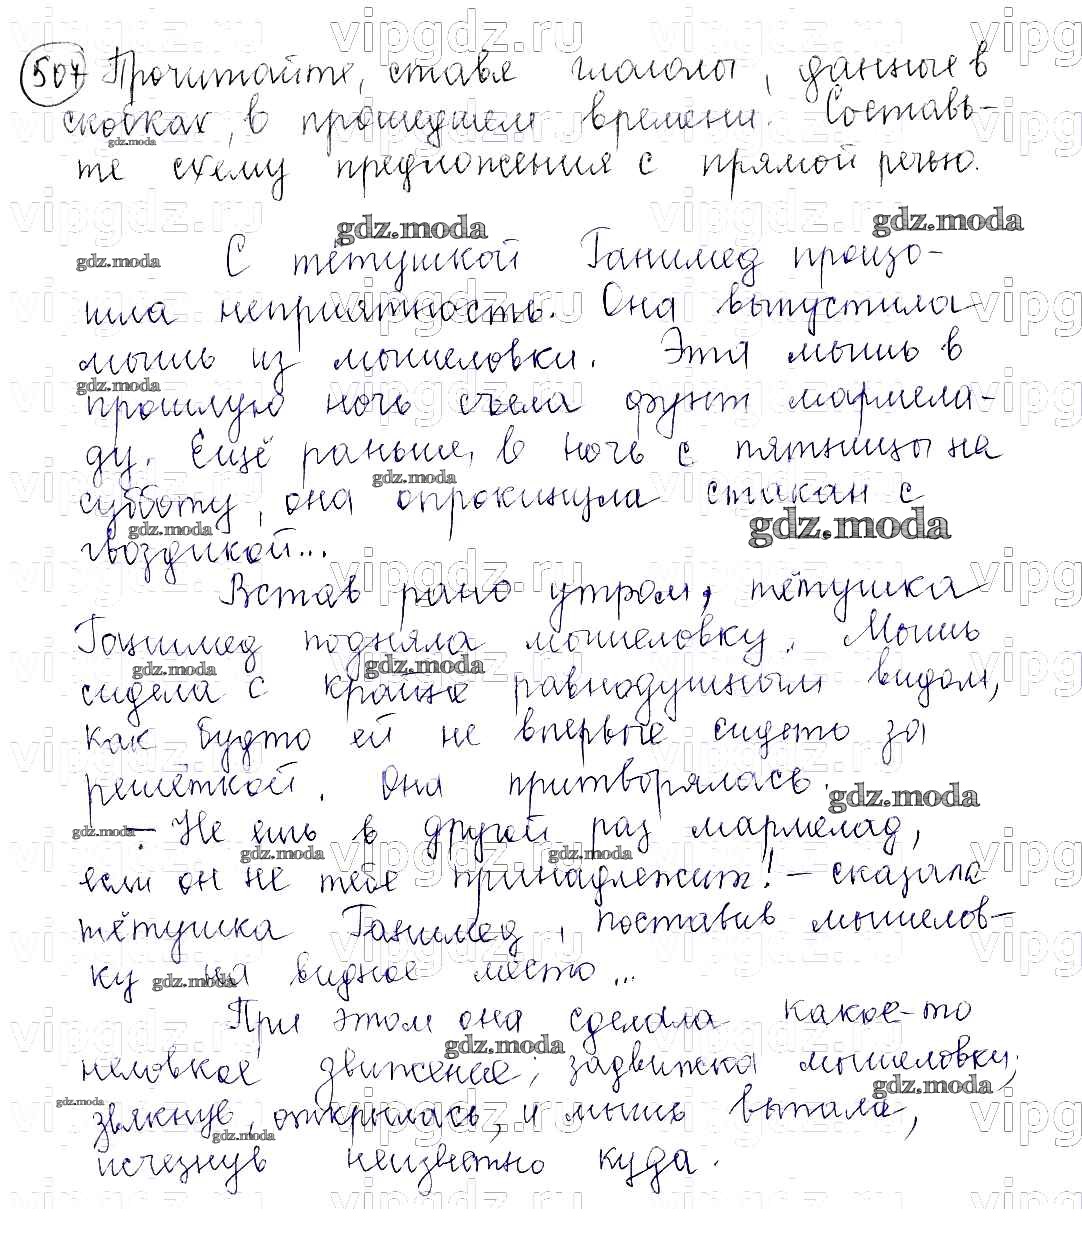 507 Прочитайте, ставя глаголы, данные в
скобках, в прошедшем времени. Составь-
те схему предложения с прямой речью.
С тётушкой Ганимед произо-
шла неприятность. Она выпустила
мышь из мышеловки. Эта мышь в
прошлую ночь съела фунт мармела-
ду. Ещё раньше, в ночь с пятницы на
субботу, она опрокинула стакан с
гвоздикой...
Встав рано утром, тётушка
Ганимед подняла мышеловку. Мышь
сидела с крайне равнодушным видом,
как будто ей не впервые сидеть за
решёткой. Она притворялась.
– Не ешь в другой раз мармелад,
если он не тебе принадлежит! – сказала
тётушка Ганимед, поставив мышелов-
ку на видное место...
При этом она сделала какое-то
неловкое движение, задвижка мышеловки,
звякнув, открылась, и мышь выпала,
исчезнув неизвестно куда.